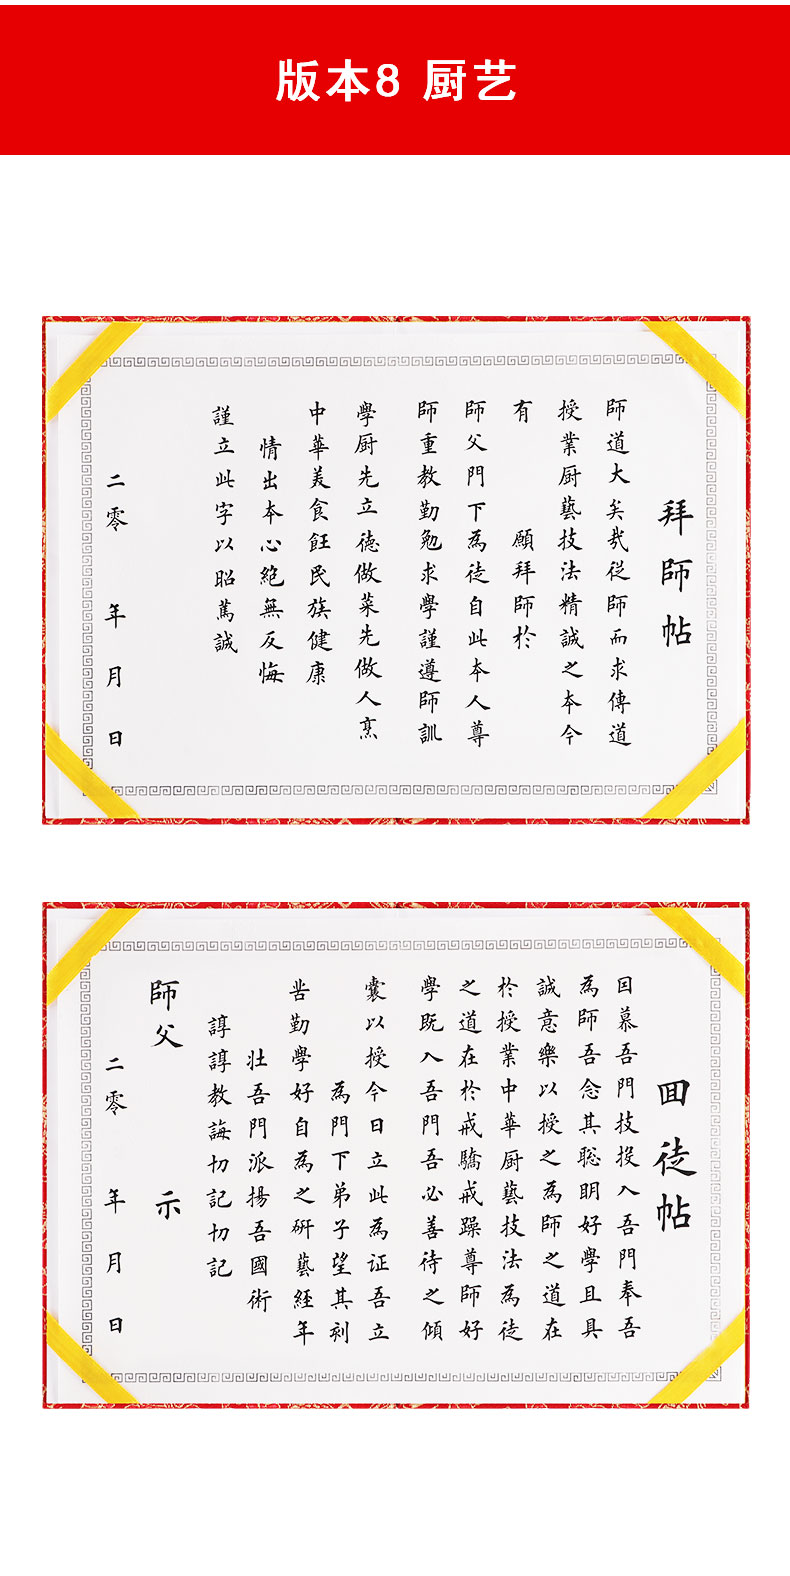 版本8 厨艺
拜師帖
師道大矣哉從師而求傳道
授業厨藝技法精誠之本今
有 願拜師於
師父門下為徒自此本人尊
師重教勤勉求學謹遵師訓
學厨先立德做菜先做人烹
中華美食飪民族健康
情出本心絕無反悔
謹立此字以昭篤誠
二零 年 月 日
回徒帖
因慕吾門技投入吾門奉吾
為師吾念其聪明好學且具
誠意樂以授之為師之道在
於授業中華厨藝技法為徒
之道在於戒驕戒躁尊師好
學既入吾門吾必善待之傾
囊以授今日立此為证吾立
為門下弟子望其刻
苦勤學好自為之研藝經年
壮吾門派揚吾國術
諄諄教誨切記切記
師父 示
二零 年 月 日